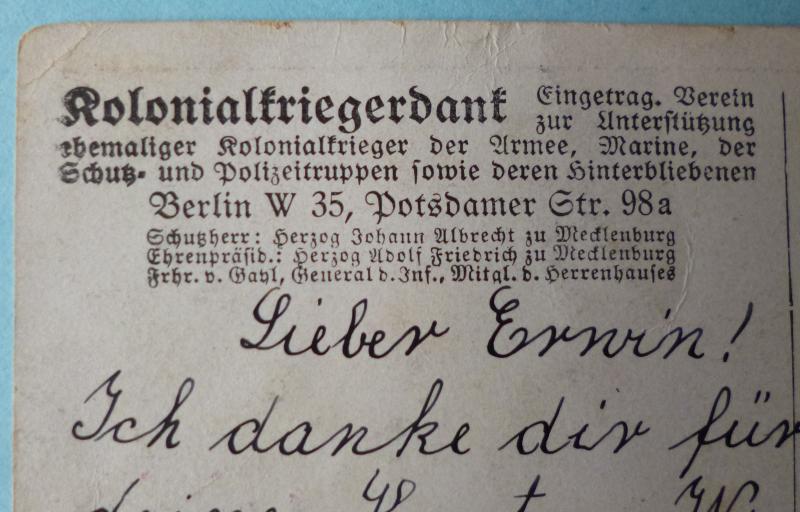 Kolonialkriegerdank Eingetrag. Verein
zur Unterstützung
ehemaliger Kolonialkrieger der Armee, Marine, der
Schutz- und Polizeitruppen sowie deren Hinterbliebenen
Berlin W 35, Potsdamer Str. 98a
Schutzherr: Herzog Johann Albrecht zu Mecklenburg
Ehrenpräsid.: Herzog Adolf Friedrich zu Mecklenburg
Frhr. v. Gayl, General d. Inf., Mitgl. d. Herrenhauses
Lieber Erwin!
Ich danke dir für